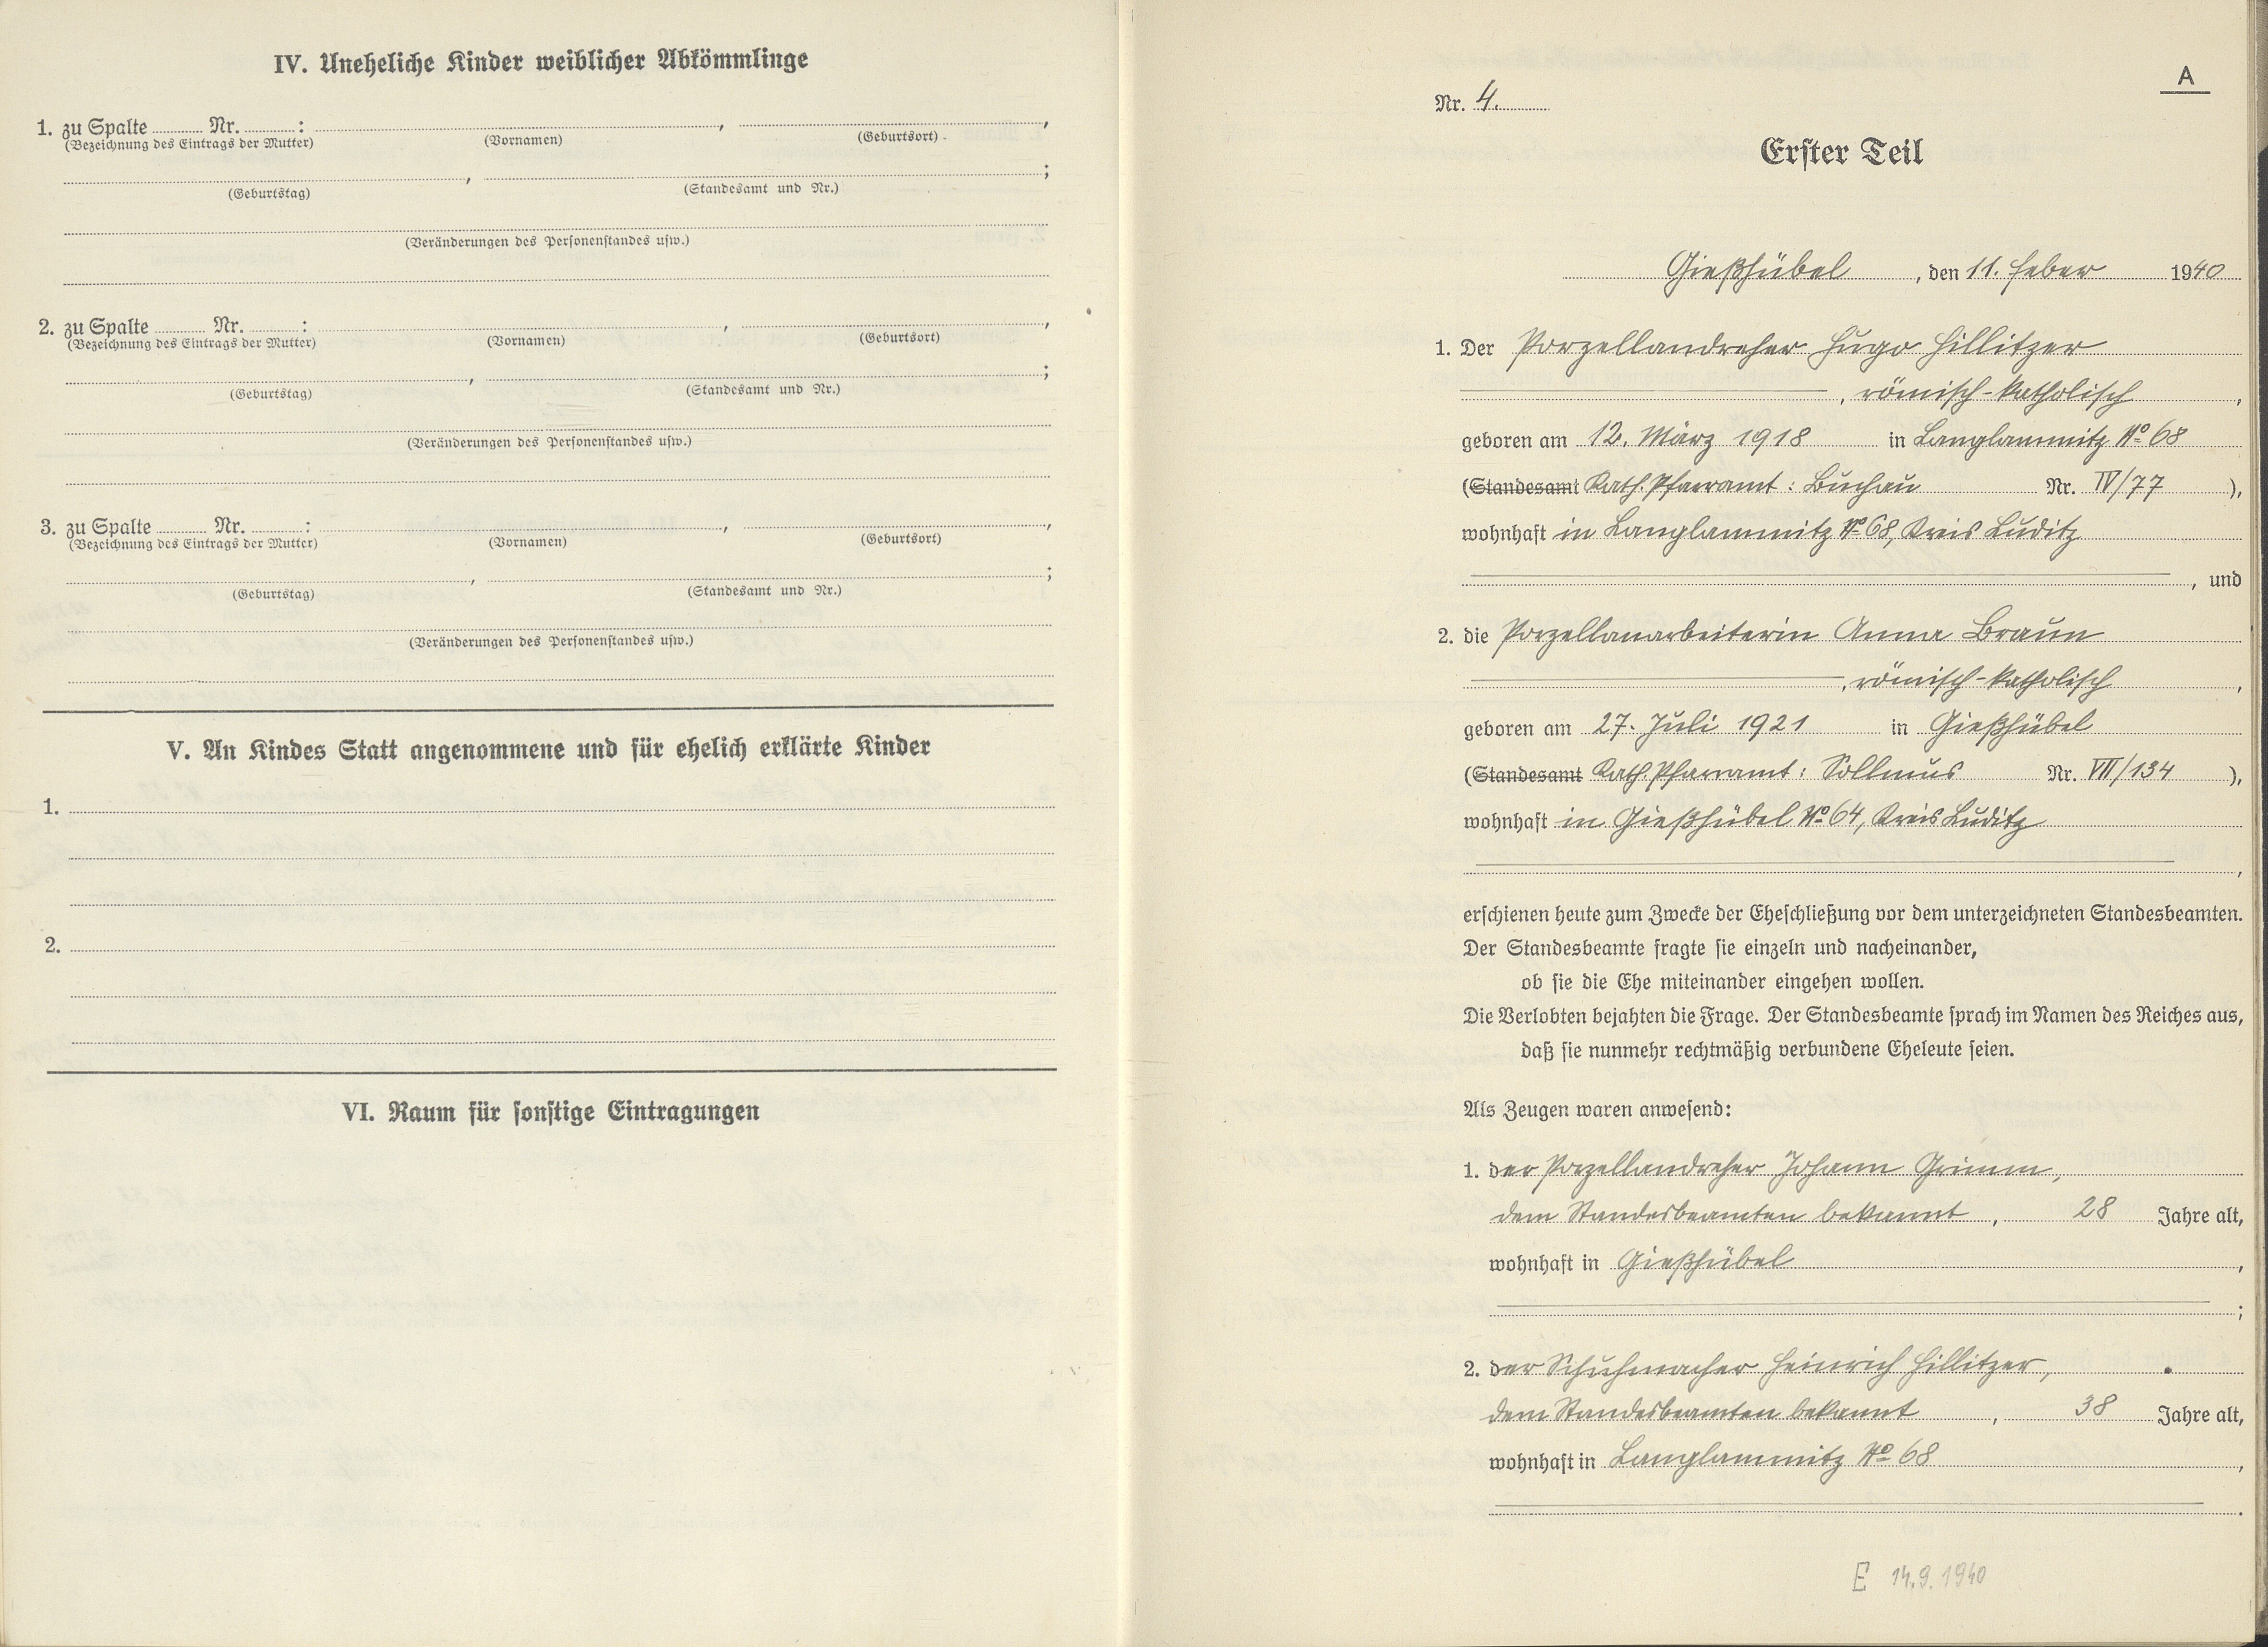 IV. Uneheliche Kinder weiblicher Abkömmlinge
1. zu Spalte ........ Nr. ........ : ........ , ........ ,
(Bezeichnung des Eintrags der Mutter) (Vornamen) (Geburtsort)
, ;
(Geburtstag) (Standesamt und Nr.)
(Veränderungen des Personenstandes usw.)
2. zu Spalte ........ Nr. ........ : ........ , ........ ,
(Bezeichnung des Eintrags der Mutter) (Vornamen) (Geburtsort)
, ;
(Geburtstag) (Standesamt und Nr.)
(Veränderungen des Personenstandes usw.)
3. zu Spalte ........ Nr. ........ : ........ , ........ ,
(Bezeichnung des Eintrags der Mutter) (Vornamen) (Geburtsort)
, ;
(Geburtstag) (Standesamt und Nr.)
(Veränderungen des Personenstandes usw.)
V. An Kindes Statt angenommene und für ehelich erklärte Kinder
1.
2.
VI. Raum für sonstige Eintragungen
A
Nr. 4.
Erster Teil
Gießhübel, den 11. Feber 1940
1. Der Porzellandreher Hugo Hillitzer
, römisch-katholisch,
geboren am 12. März 1918 in Langlammitz No 68
(Standesamt Kath. Pfarramt: Buchau Nr. IV/77),
wohnhaft in Langlammitz No 68, Kreis Luditz
, und
2. die Porzellanarbeiterin Anna Braun
, römisch-katholisch,
geboren am 27. Juli 1921 in Gießhübel
(Standesamt Kath. Pfarramt: Sollmus Nr. VII/134),
wohnhaft in Gießhübel No 64, Kreis Luditz
,
erschienen heute zum Zwecke der Eheschließung vor dem unterzeichneten Standesbeamten.
Der Standesbeamte fragte sie einzeln und nacheinander,
ob sie die Ehe miteinander eingehen wollen.
Die Verlobten bejahten die Frage. Der Standesbeamte sprach im Namen des Reiches aus,
daß sie nunmehr rechtmäßig verbundene Eheleute seien.
Als Zeugen waren anwesend:
1. der Porzellandreher Johann Grimm,
dem Standesbeamten bekannt, 28 Jahre alt,
wohnhaft in Gießhübel,
;
2. der Schuhmacher Heinrich Hillitzer,
dem Standesbeamten bekannt, 38 Jahre alt,
wohnhaft in Langlammitz No 68,
.
E 14.9.1940